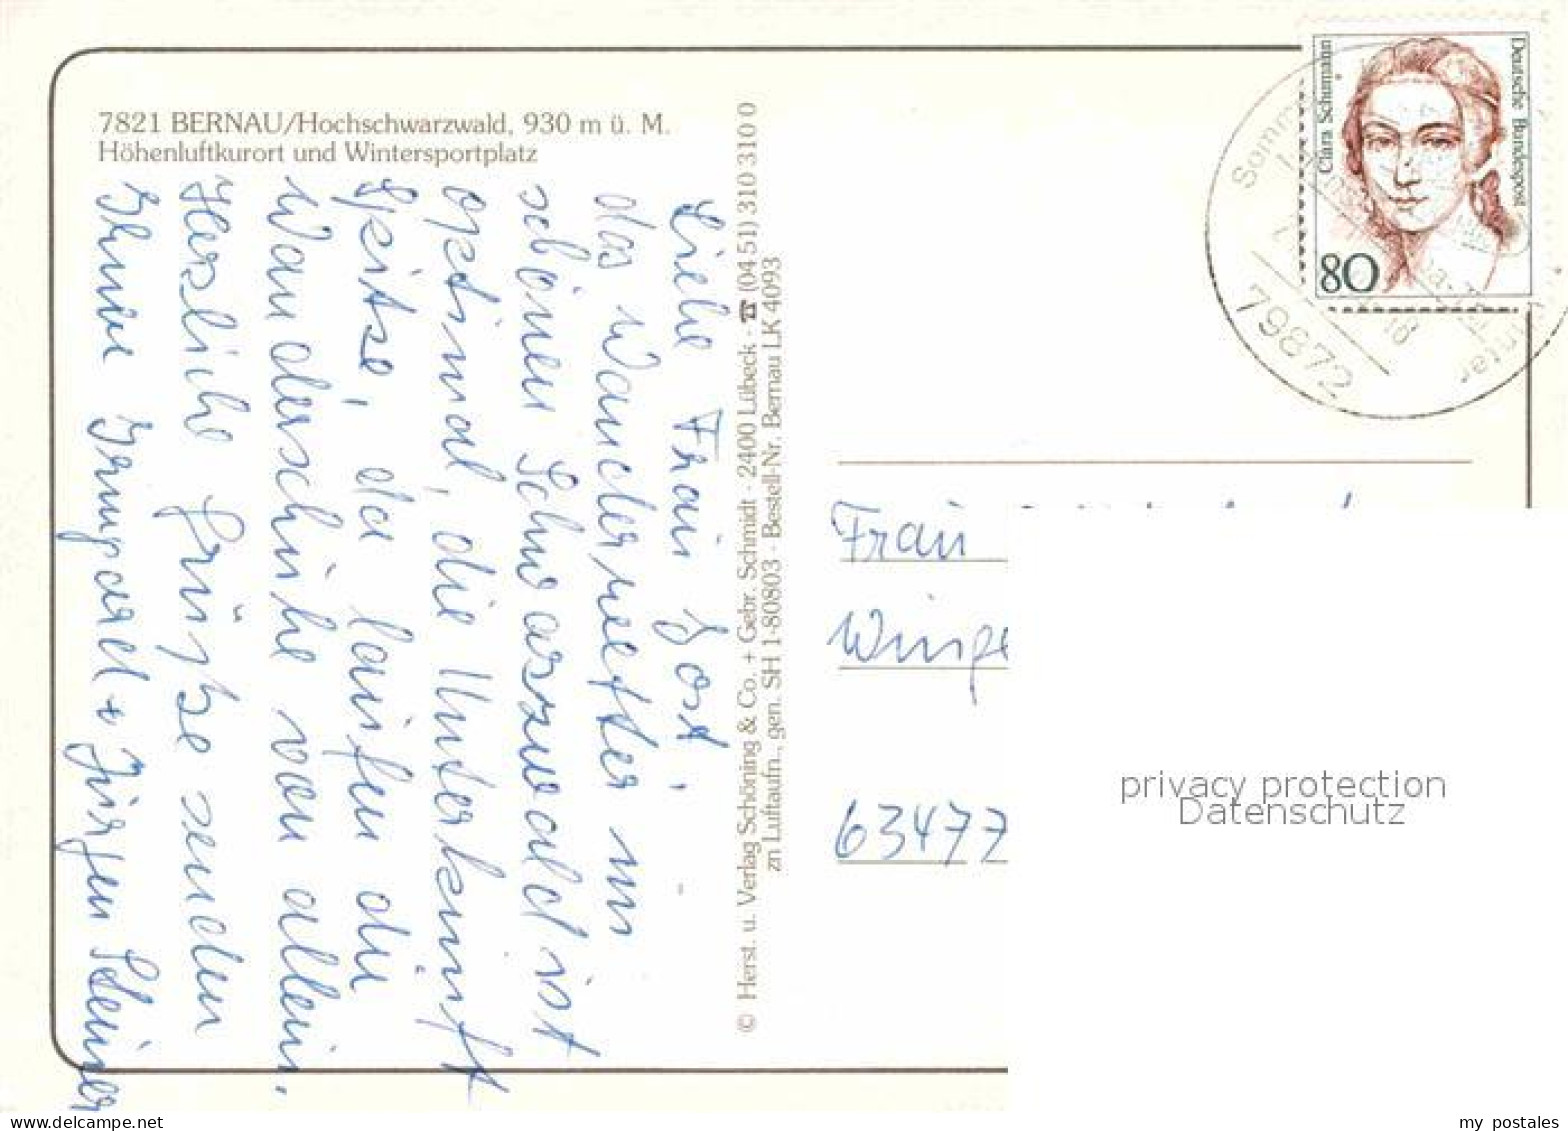 7821 BERNAU/Hochschwarzwald, 930 m ü. M.
Höhenluftkurort und Wintersportplatz
Liebe Frau Jost,
das Wanderwetter im
schönen Schwarzwald ist
optimal, die Unterkunft
Spitze, da laufen die
Wanderschuhe von allein.
Herzliche Grüße senden
Ihnen Irmgard + Jürgen Steiner
© Herst. u. Verlag Schöning & Co. + Gebr. Schmidt · 2400 Lübeck · ☎ (04 51) 310 310 0
zn Luftaufn., gen. SH 1-80803 · Bestell-Nr. Bernau LK 4093
Clara Schumann
Deutsche Bundespost
80
79872
18
Frau
Winge
63477
privacy protection
Datenschutz
my postales